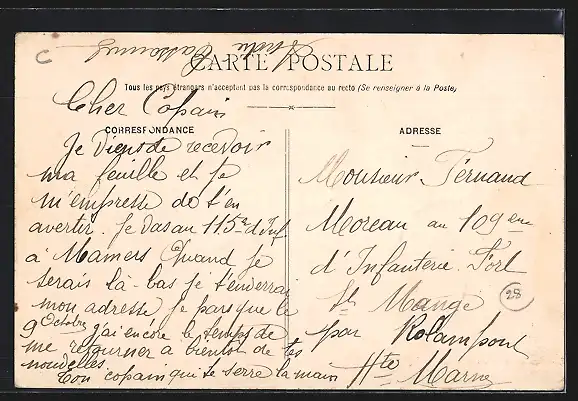 C
CARTE POSTALE
Tous les pays étrangers n'acceptent pas la correspondance au recto (Se renseigner à la Poste)
Cher Copain
CORRESPONDANCE
Je viens de recevoir
ma feuille et je
m'empresse de t'en
avertir. Je vas au 115e d'Inf.
à Mamers Quand je
serais là-bas je t'enverrai
mon adresse je pars que le
9 Octobre j'ai encore le temps de
me retourner a bientôt de tes
nouvelles.
Ton copain qui te serre la main
ADRESSE
Monsieur Fernand
Moreau au 109eme
d'Infanterie. Fort
St Mange
par Rolampont
Hte Marne
28